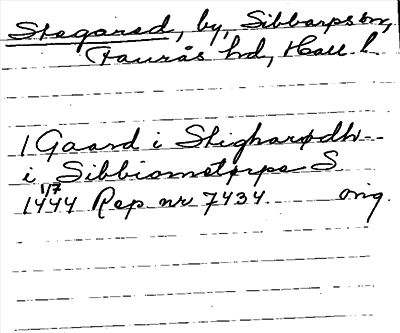 Stegared, by, Sibbarps sn,
Faurås hd, Hall. l.
1 Gaard i Stigharødh
i Sibbiornstorpe S
1/7
1444 Rep nr 7434. orig.